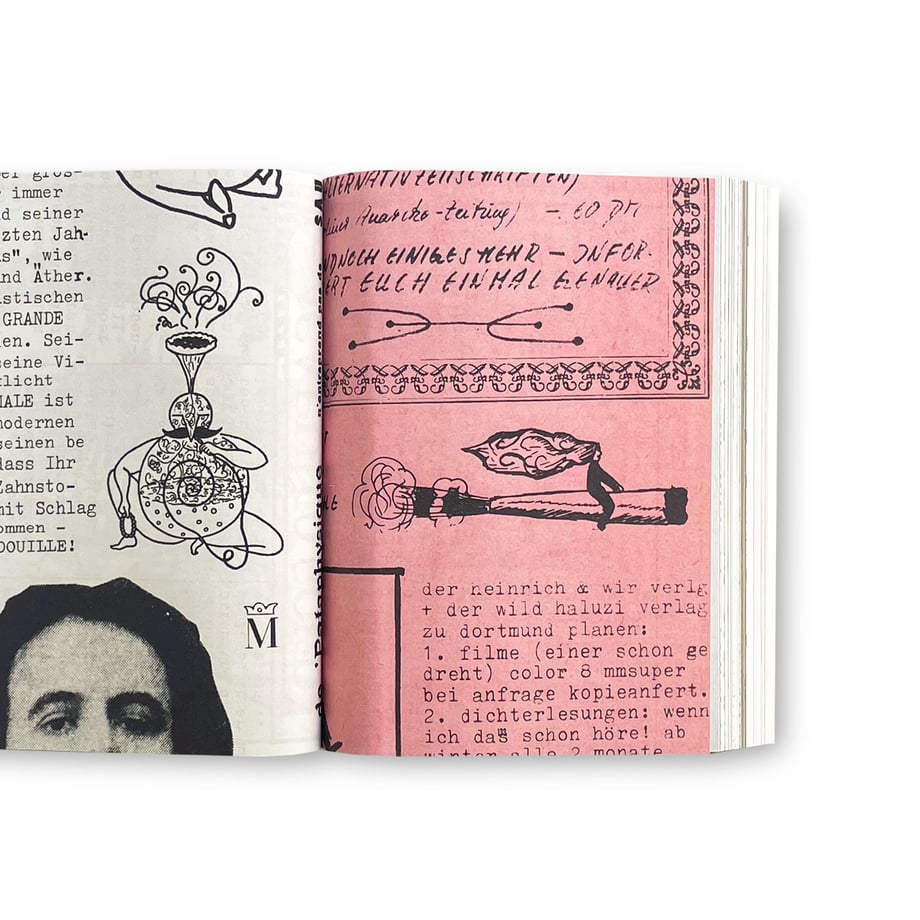 immer
d seiner
zten Jah-
s", wie
nd "Äther.
istischen
GRANDE
en. Sei-
seine Vi-
tlicht
MALE ist
modernen
seinen be
dass Ihr
Zahnsto-
mit Schlag
ommen -
DOUILLE!
M
'Pataphysique
ALTERNATIVZEITSCHRIFTEN)
Anarcho-Zeitung) - .60 DM
NDNOCH EINIGES MEHR - INFOR-
ERT EUCH EINMAL GENAUER
der heinrich & wir verlg
+ der wild haluzi verlag
zu dortmund planen:
1. filme (einer schon ge
dreht) color 8 mmsuper
bei anfrage kopieanfert.
2. dichterlesungen: wenn
ich das schon höre! ab
winter alle 2 monate